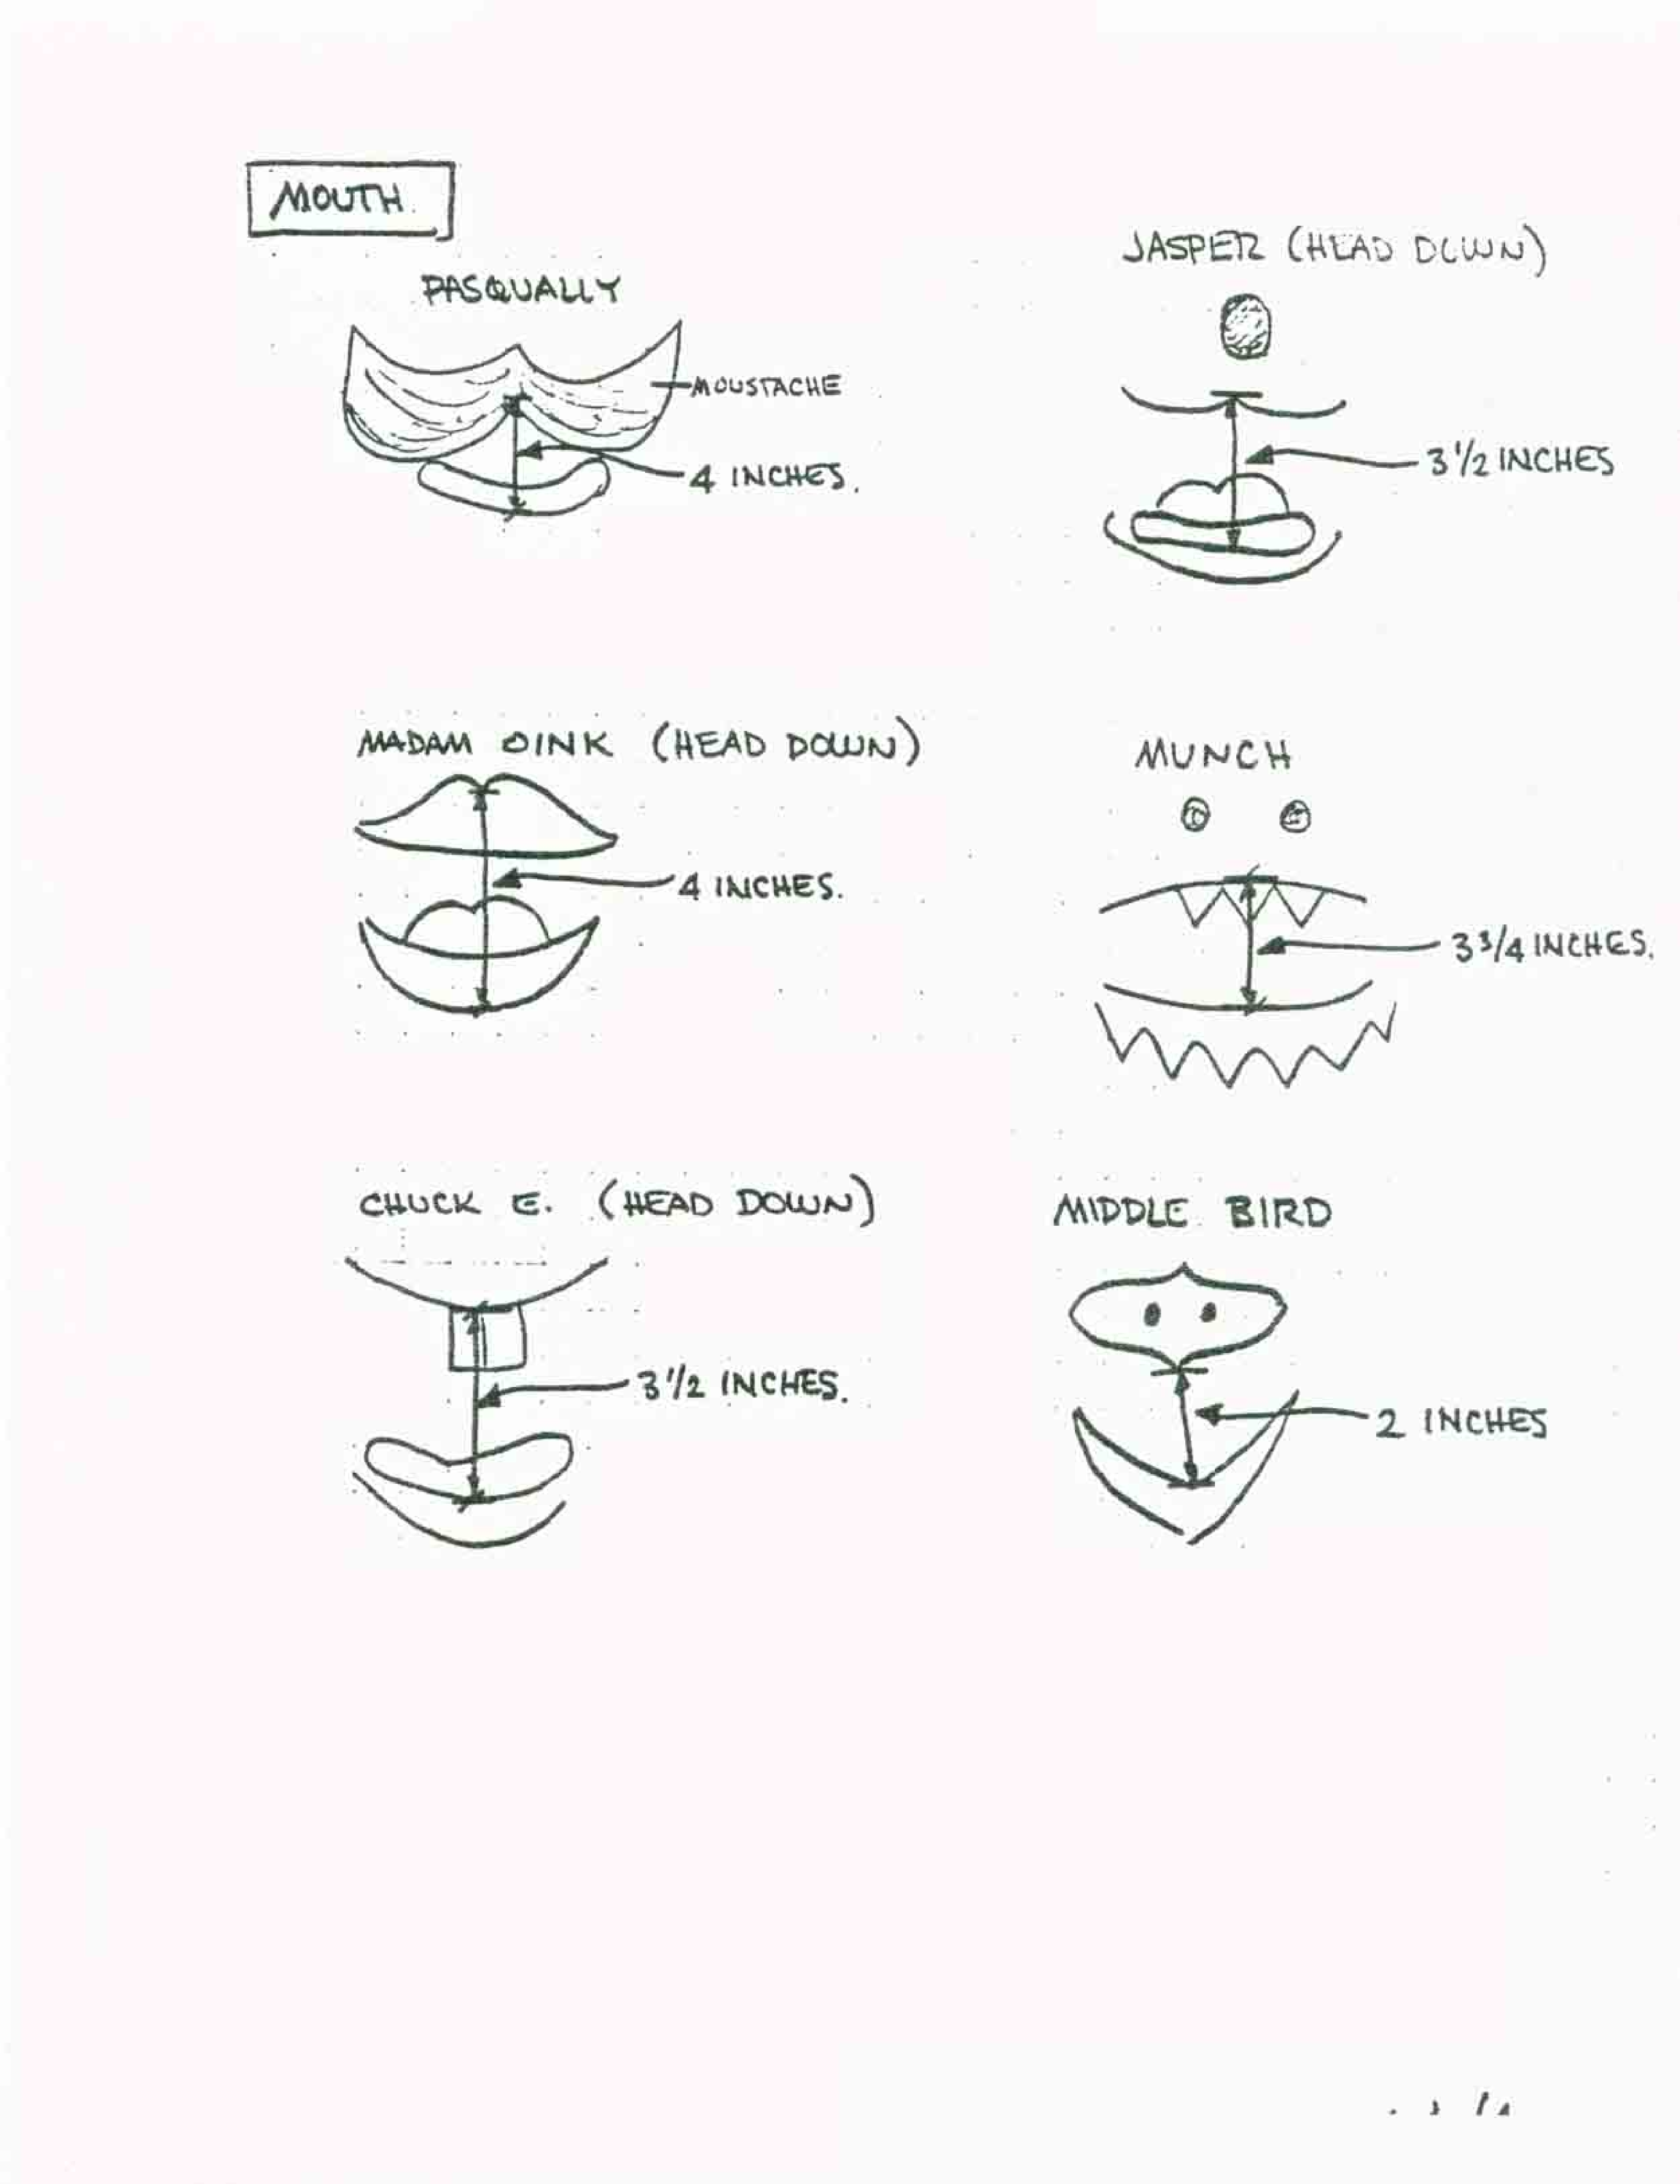 MOUTH
PASQUALLY
MOUSTACHE
4 INCHES.
JASPER (HEAD DOWN)
3 1/2 INCHES
MADAM OINK (HEAD DOWN)
4 INCHES.
MUNCH
3 3/4 INCHES.
CHUCK E. (HEAD DOWN)
3 1/2 INCHES.
MIDDLE BIRD
2 INCHES